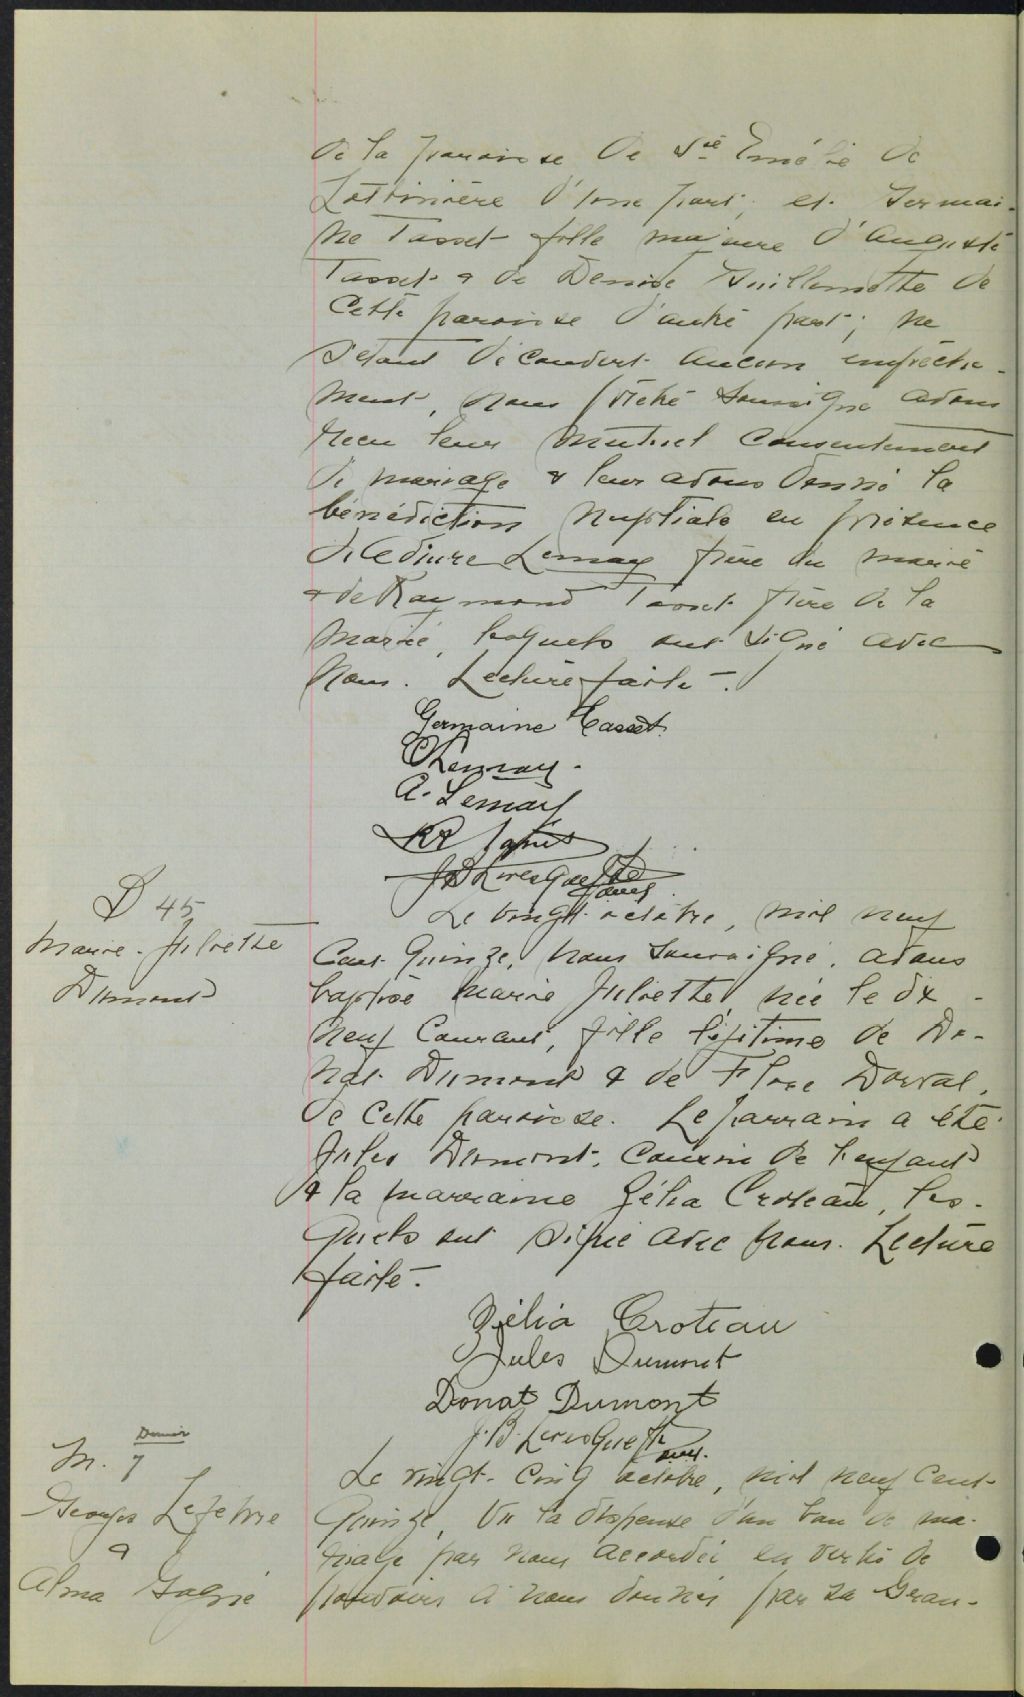 de la paroisse de Ste Emélie de
Lotbinière d'une part; et Germai-
ne Tasset fille majeure d'Auguste
Tasset & de Denise Guillemette de
cette paroisse d'autre part; ne
s'étant découvert aucun empêche-
ment, nous prêtre soussigné avons
reçu leur mutuel consentement
de mariage & leur avons donné la
bénédiction nuptiale en présence
de Lemay frère du marié
& de Raymond Tasset frère de la
mariée, lesquels ont signé avec
nous. Lecture faite.
Germaine Tasset
Lemay.
A. Lemay
Tasset
J.B. Levesque Ptre
B 45
Marie-Juliette
Dumont
Le vingt octobre, mil neuf
cent quinze, nous soussigné, avons
baptisé Marie Juliette, née le dix-
neuf courant, fille légitime de Do-
nat Dumont & de Flore Dorval,
de cette paroisse. Le parrain a été
Jules Dumont, cousin de l'enfant
& la marraine Zélia Croteau, les-
quels ont signé avec nous. Lecture
faite.
Zélia Croteau
Jules Dumont
Donat Dumont
J.B. Levesque Ptre
M. 7
Georges Lefebvre
&
Alma Gagné
Le vingt-cinq octobre, mil neuf cent
quinze, vu la dispense d'un ban de ma-
riage par nous accordée en vertu de
pouvoirs à nous donnés par Sa Gran-